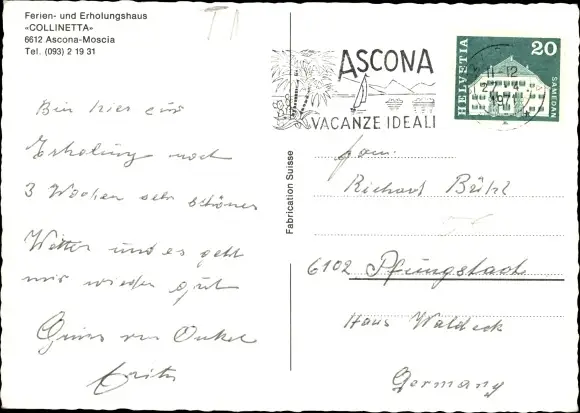 Ferien- und Erholungshaus
«COLLINETTA»
6612 Ascona-Moscia
Tel. (093) 2 19 31
Bin hier zur
Erholung noch
3 Wochen sehr schönes
Wetter und es geht
mir wieder gut
Gruss von Onkel
Fritz
ASCONA
VACANZE IDEALI
HELVETIA
20
SAMEDAN
11-12
1971
Fabrication Suisse
Fam.
Richard
6102 Pfungstadt
Haus Waldeck
Germany